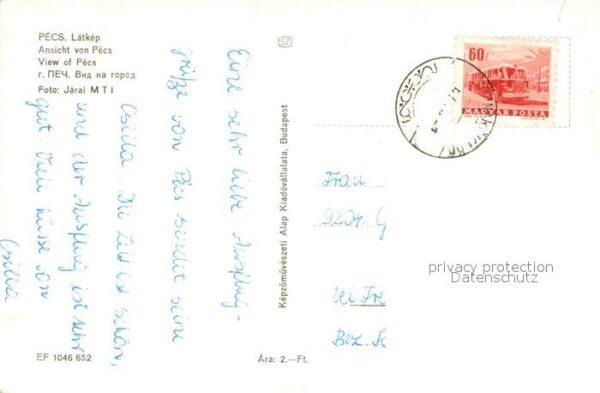 PÉCS. Látkép
Ansicht von Pécs
View of Pécs
г. ПЕЧ. Вид на город
Foto: Járai MTI
Eine sehr liebe Ausflug-
grüße von Pécs
Csilla. Die Zeit ist schön,
und der Ausflug ist sehr
gut. Viele
Csilla
EF 1046 652
Ára: 2.—Ft.
Képzőművészeti Alap Kiadóvállalata, Budapest
60f
MAGYAR POSTA
Frau
9201 G
bei Fre
Bez. K
privacy protection
Datenschutz